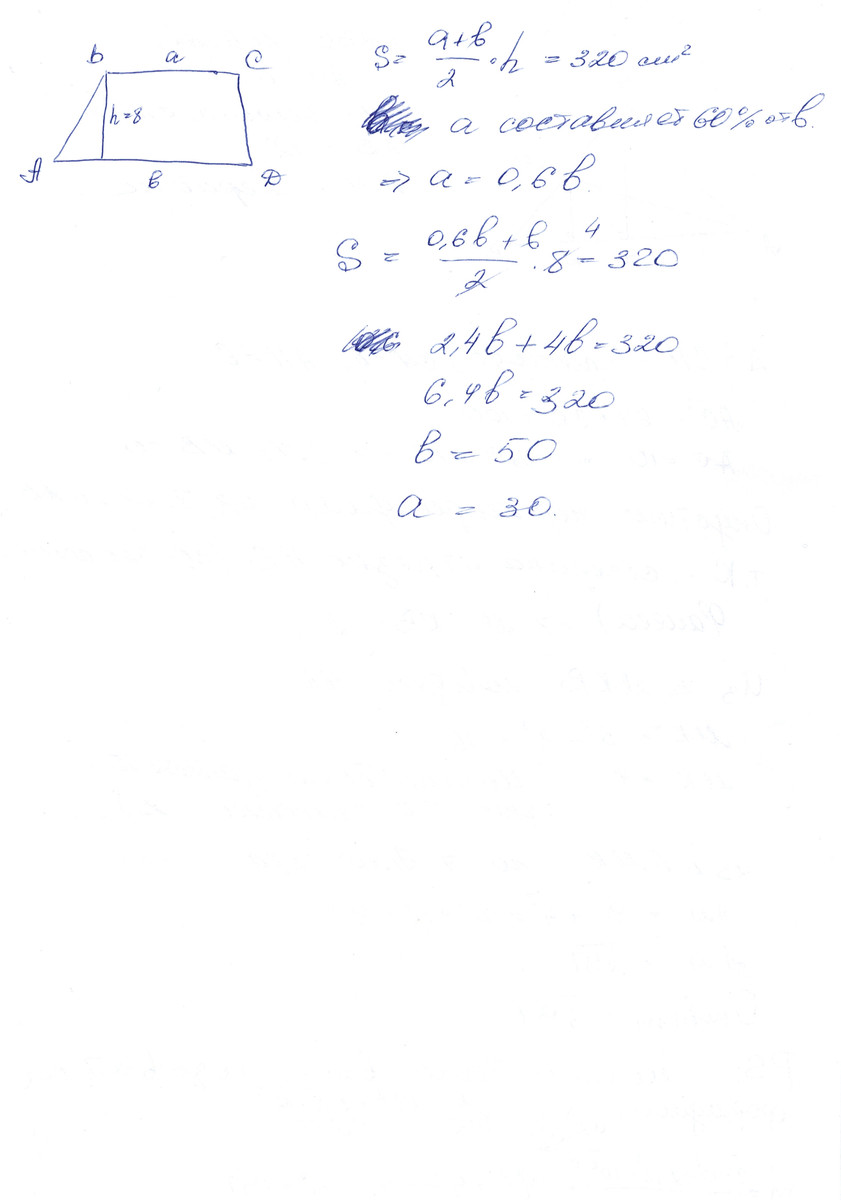 B a C
h=8
A в D
S = (a+в)/2 · h = 320 см²
a составляет 60% от в.
=> a = 0,6 в.
S = (0,6в + в)/2 · 8 4 = 320
2,4в + 4в = 320
6,4в = 320
в = 50
a = 30.